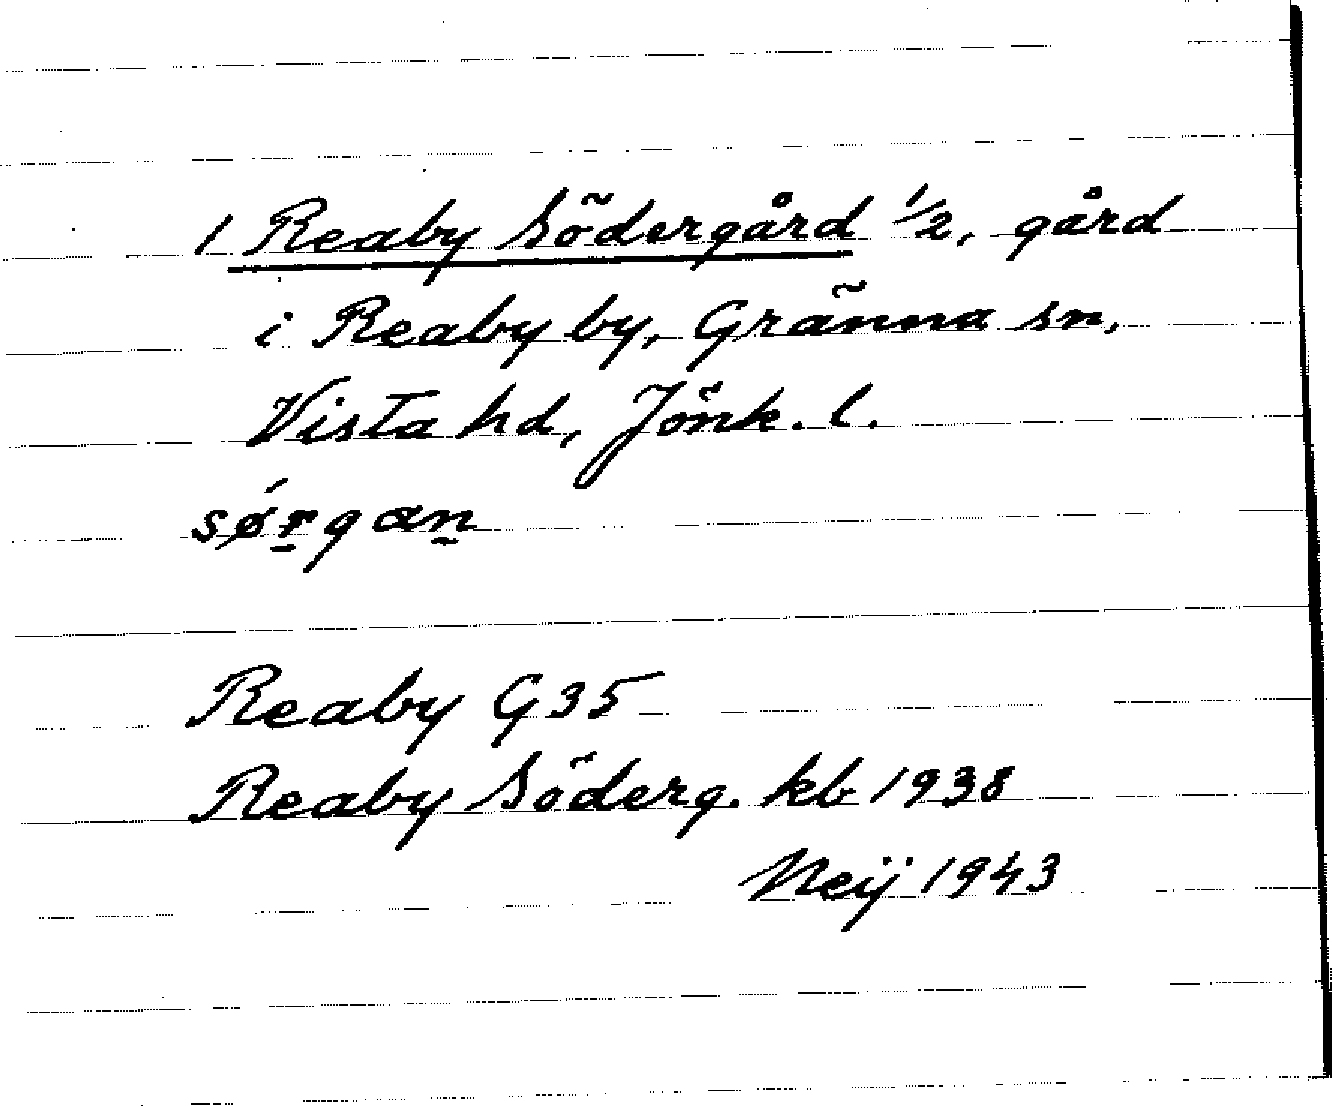 1 Reaby Södergård 1/2, gård
i Reaby by, Gränna sn,
Vista hd, Jönk. l.
sǿr̠gan̠
Reaby G35
Reaby Söderg. kb 1938
Neij 1943